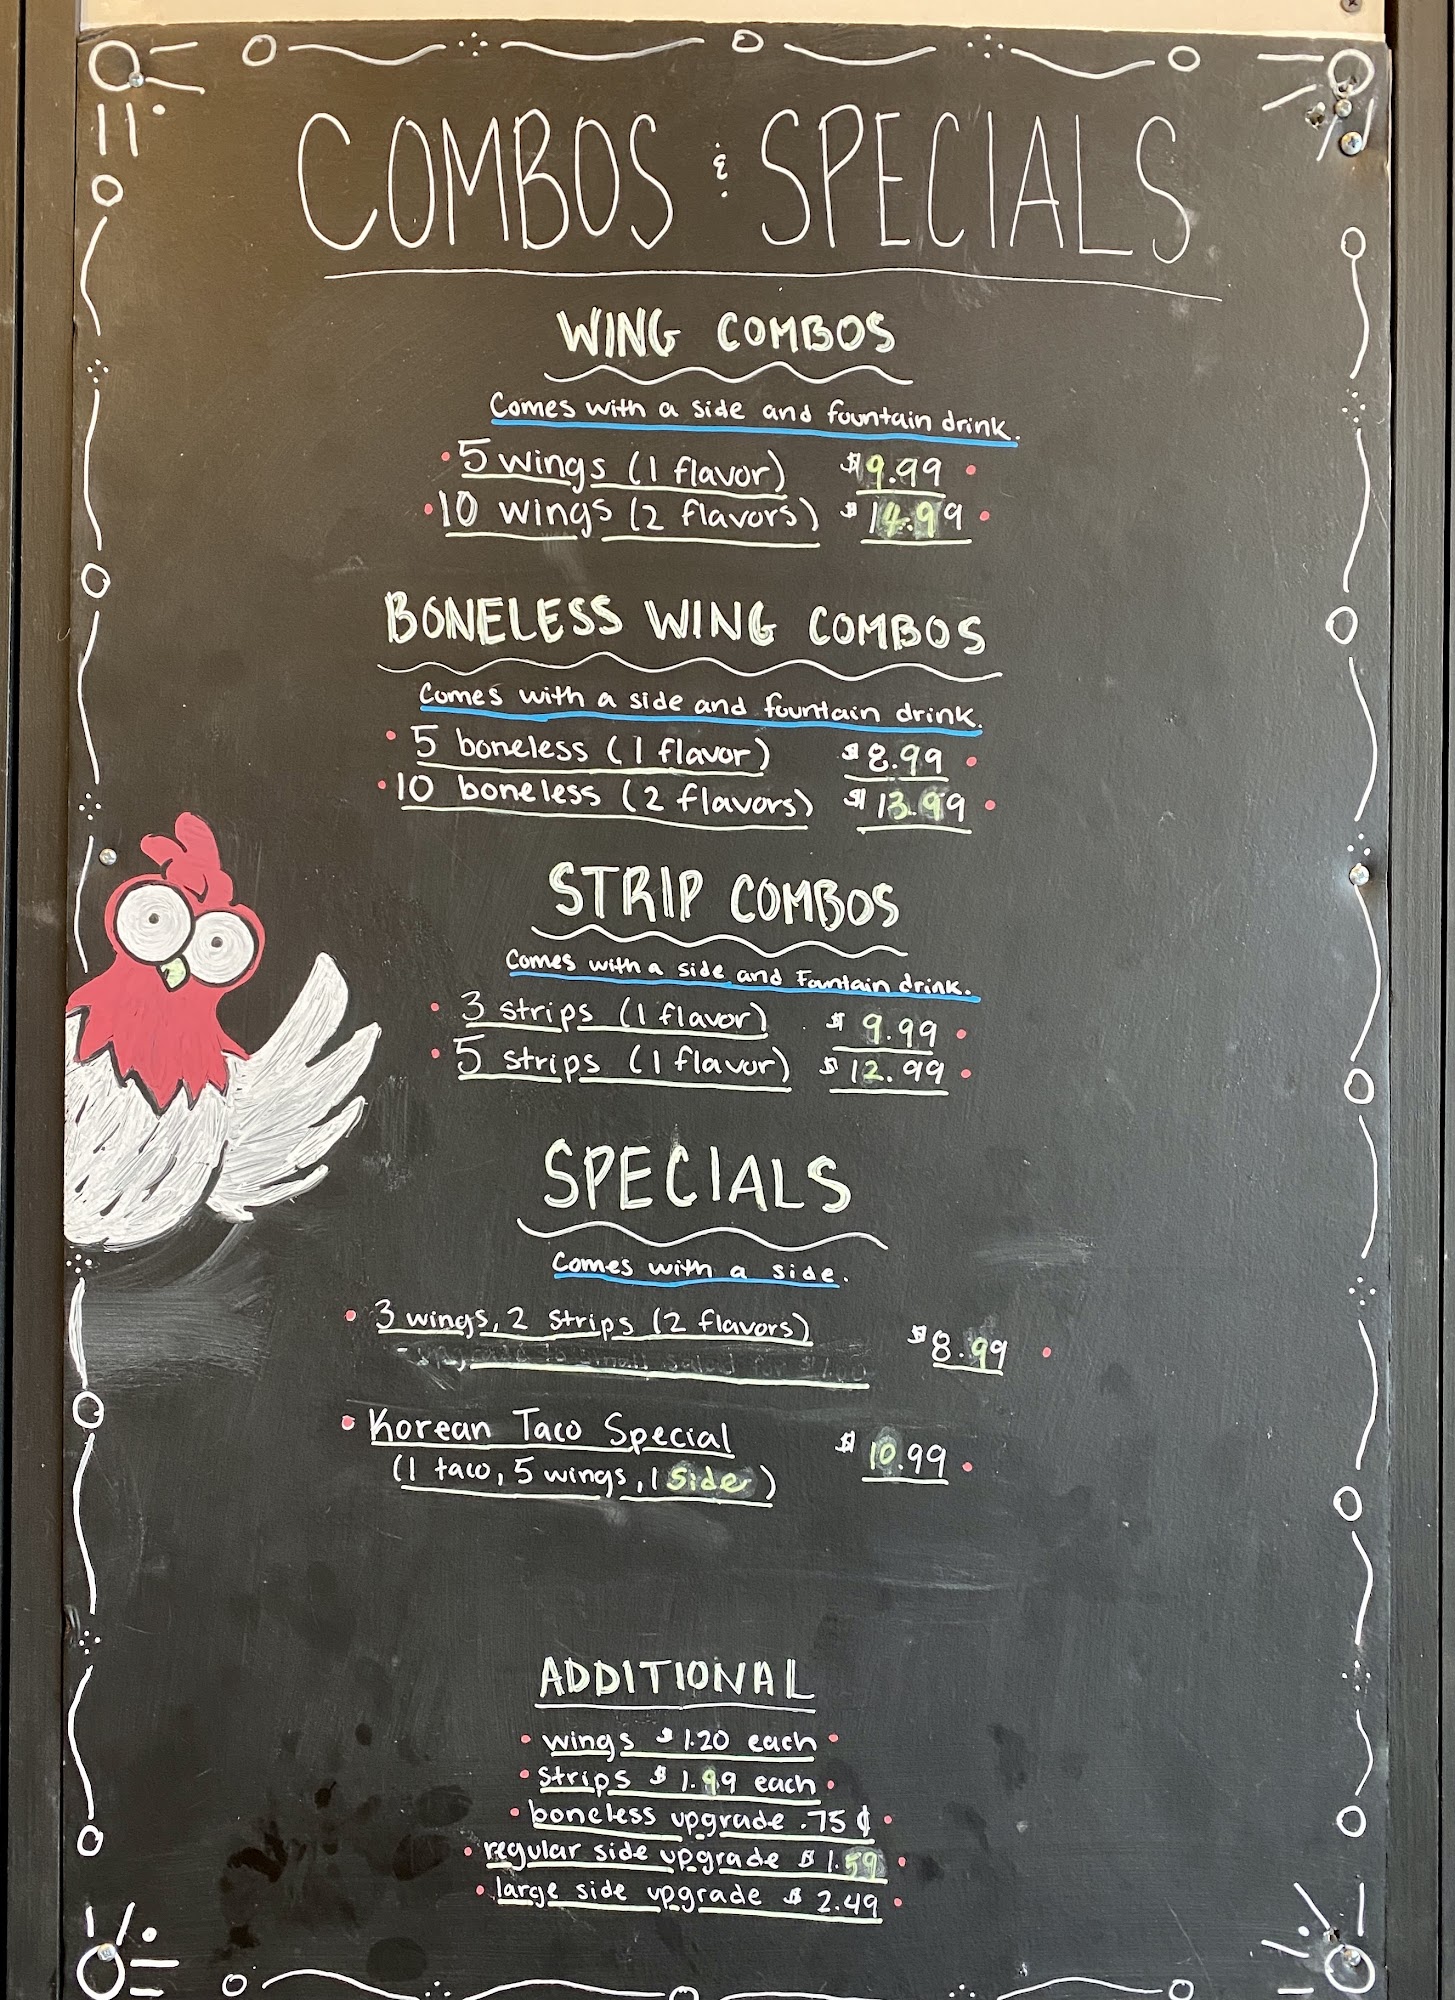 COMBOS & SPECIALS
WING COMBOS
Comes with a side and fountain drink.
• 5 wings (1 flavor) $9.99 •
• 10 wings (2 flavors) $14.99 •
BONELESS WING COMBOS
Comes with a side and fountain drink.
• 5 boneless (1 flavor) $8.99 •
• 10 boneless (2 flavors) $13.99 •
STRIP COMBOS
Comes with a side and Fountain drink.
• 3 strips (1 flavor) $9.99 •
• 5 strips (1 flavor) $12.99 •
SPECIALS
Comes with a side.
• 3 wings, 2 strips (2 flavors) $8.99 •
small salad for
• Korean Taco Special $10.99 •
(1 taco, 5 wings, 1 side)
ADDITIONAL
• wings $1.20 each •
• strips $1.99 each •
• boneless upgrade .75¢ •
• regular side upgrade $1.59 •
• large side upgrade $2.49 •